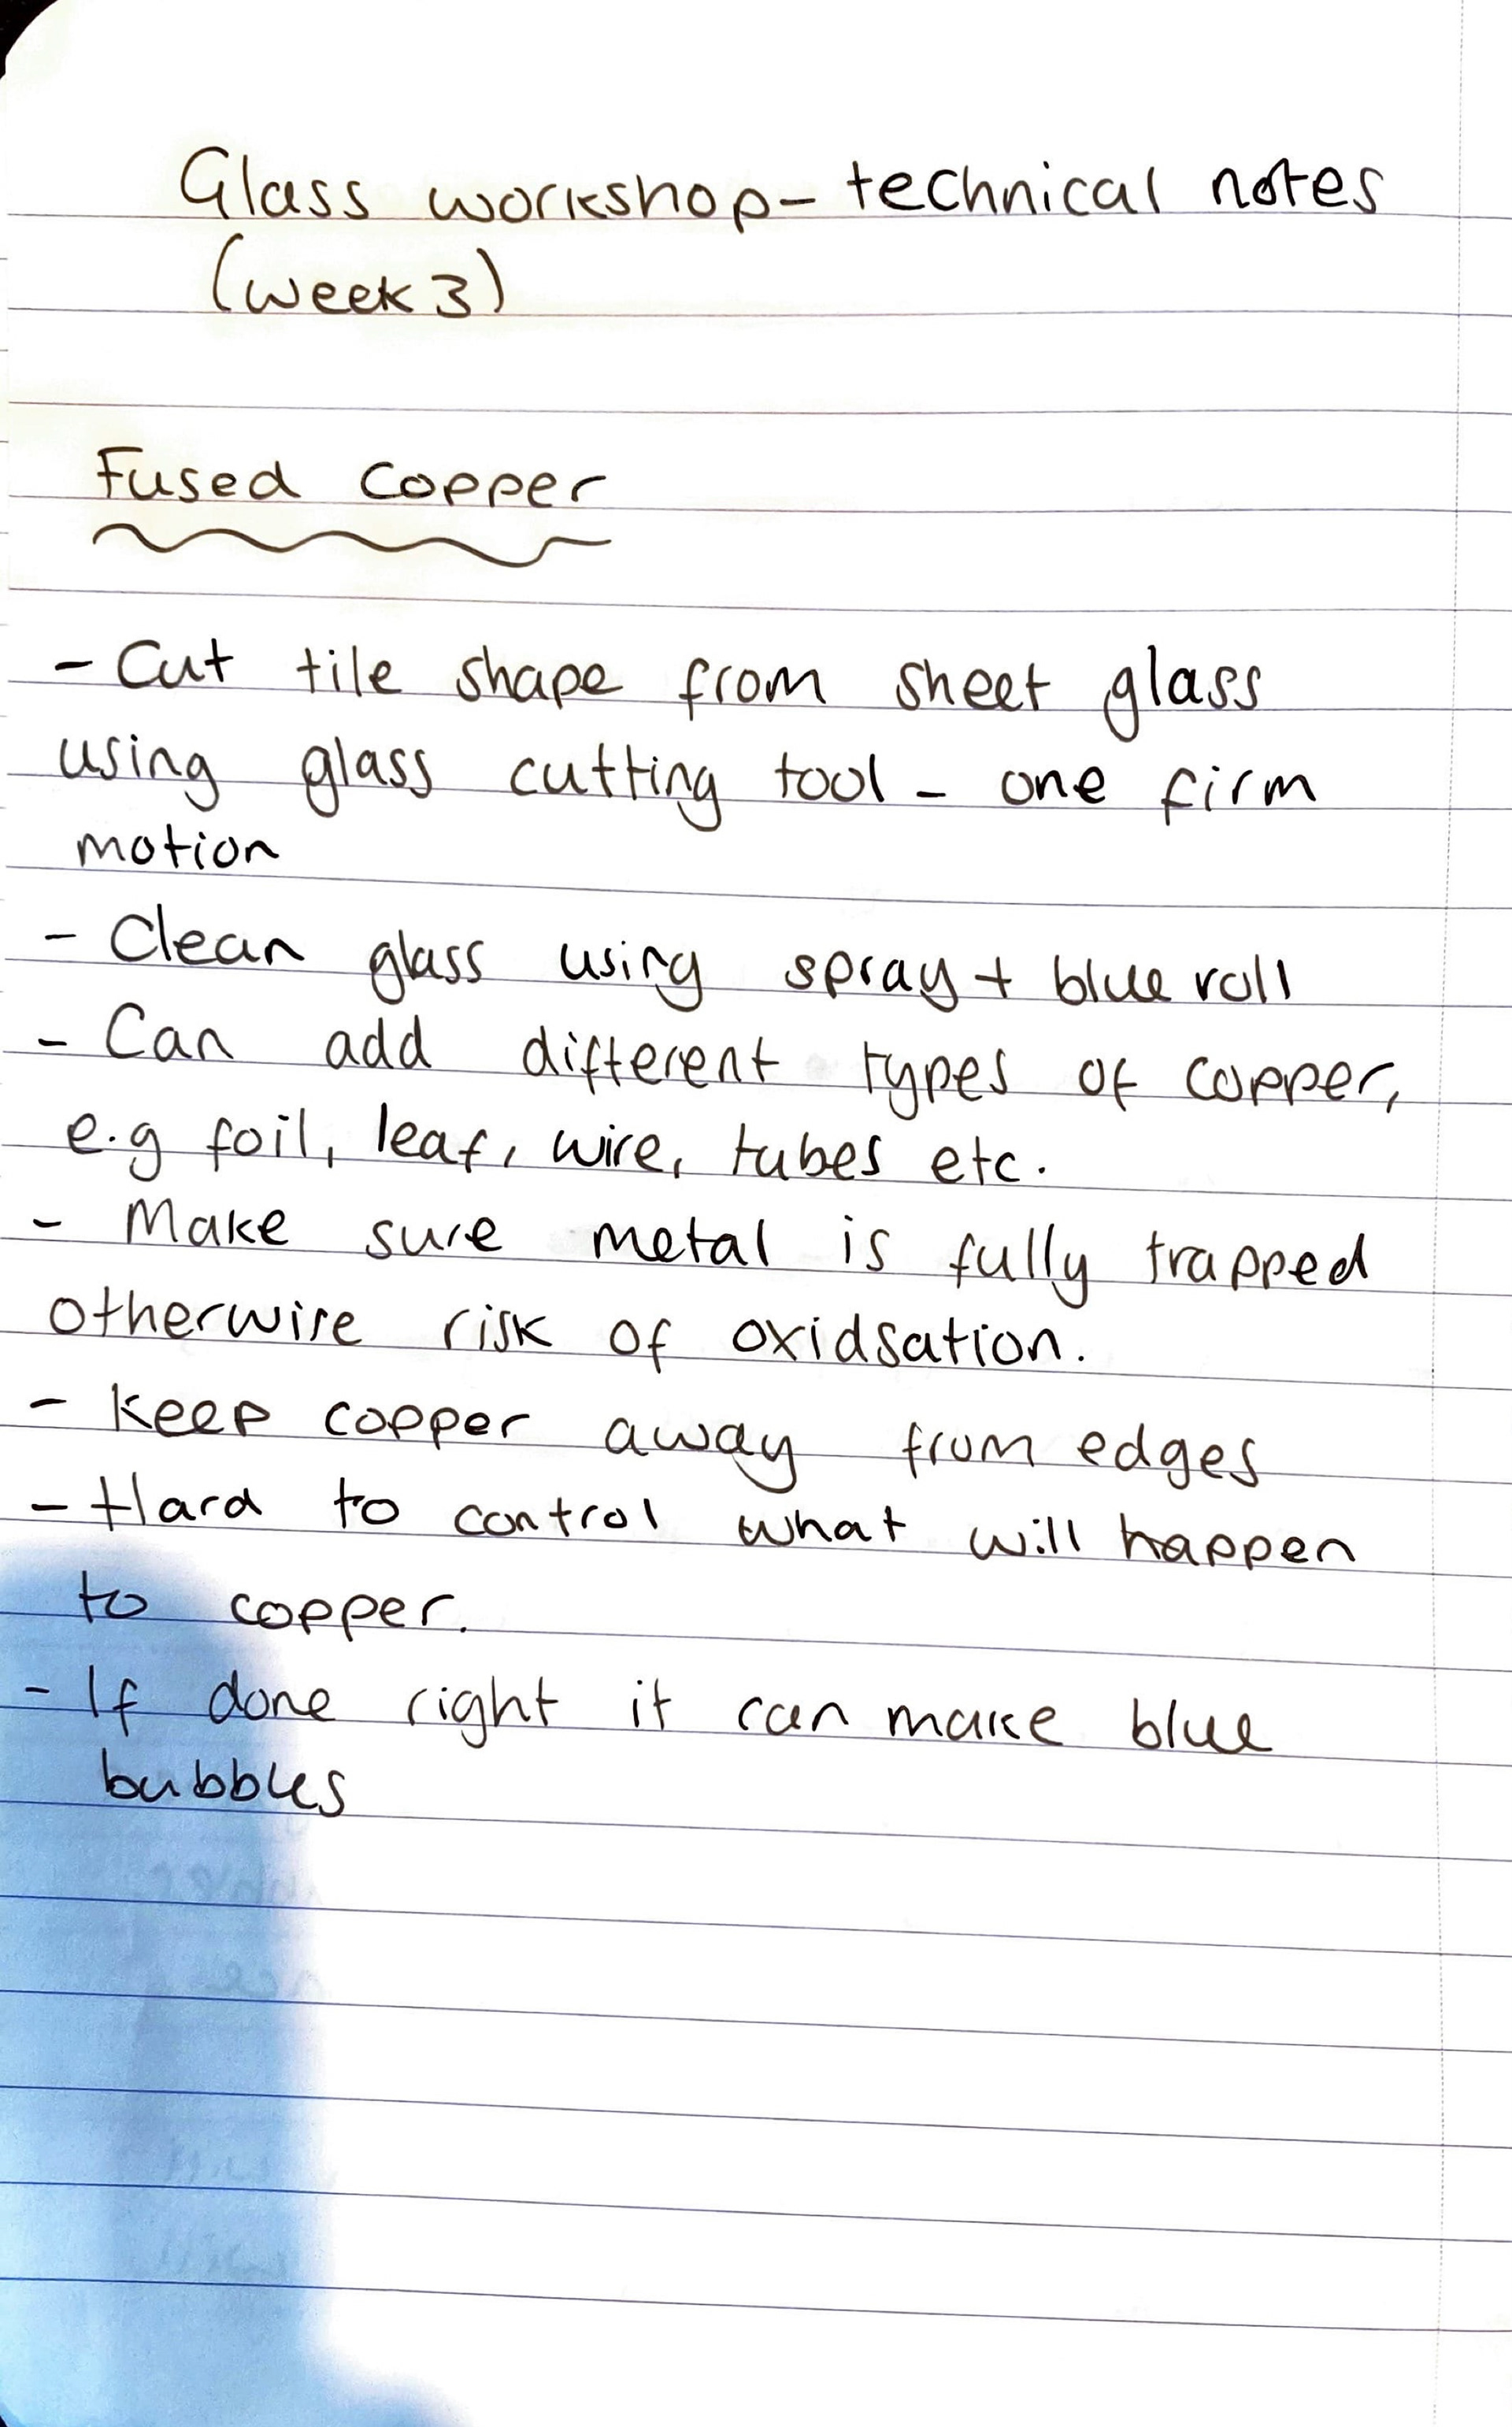 Glass workshop - technical notes
(week 3)
Fused Copper
- Cut tile shape from sheet glass
using glass cutting tool - one firm
motion
- Clean glass using spray + blue roll
- Can add different types of copper,
e.g foil, leaf, wire, tubes etc.
- Make sure metal is fully trapped
otherwise risk of oxidsation.
- Keep copper away from edges
- Hard to control what will happen
to copper.
- If done right it can make blue
bubbles